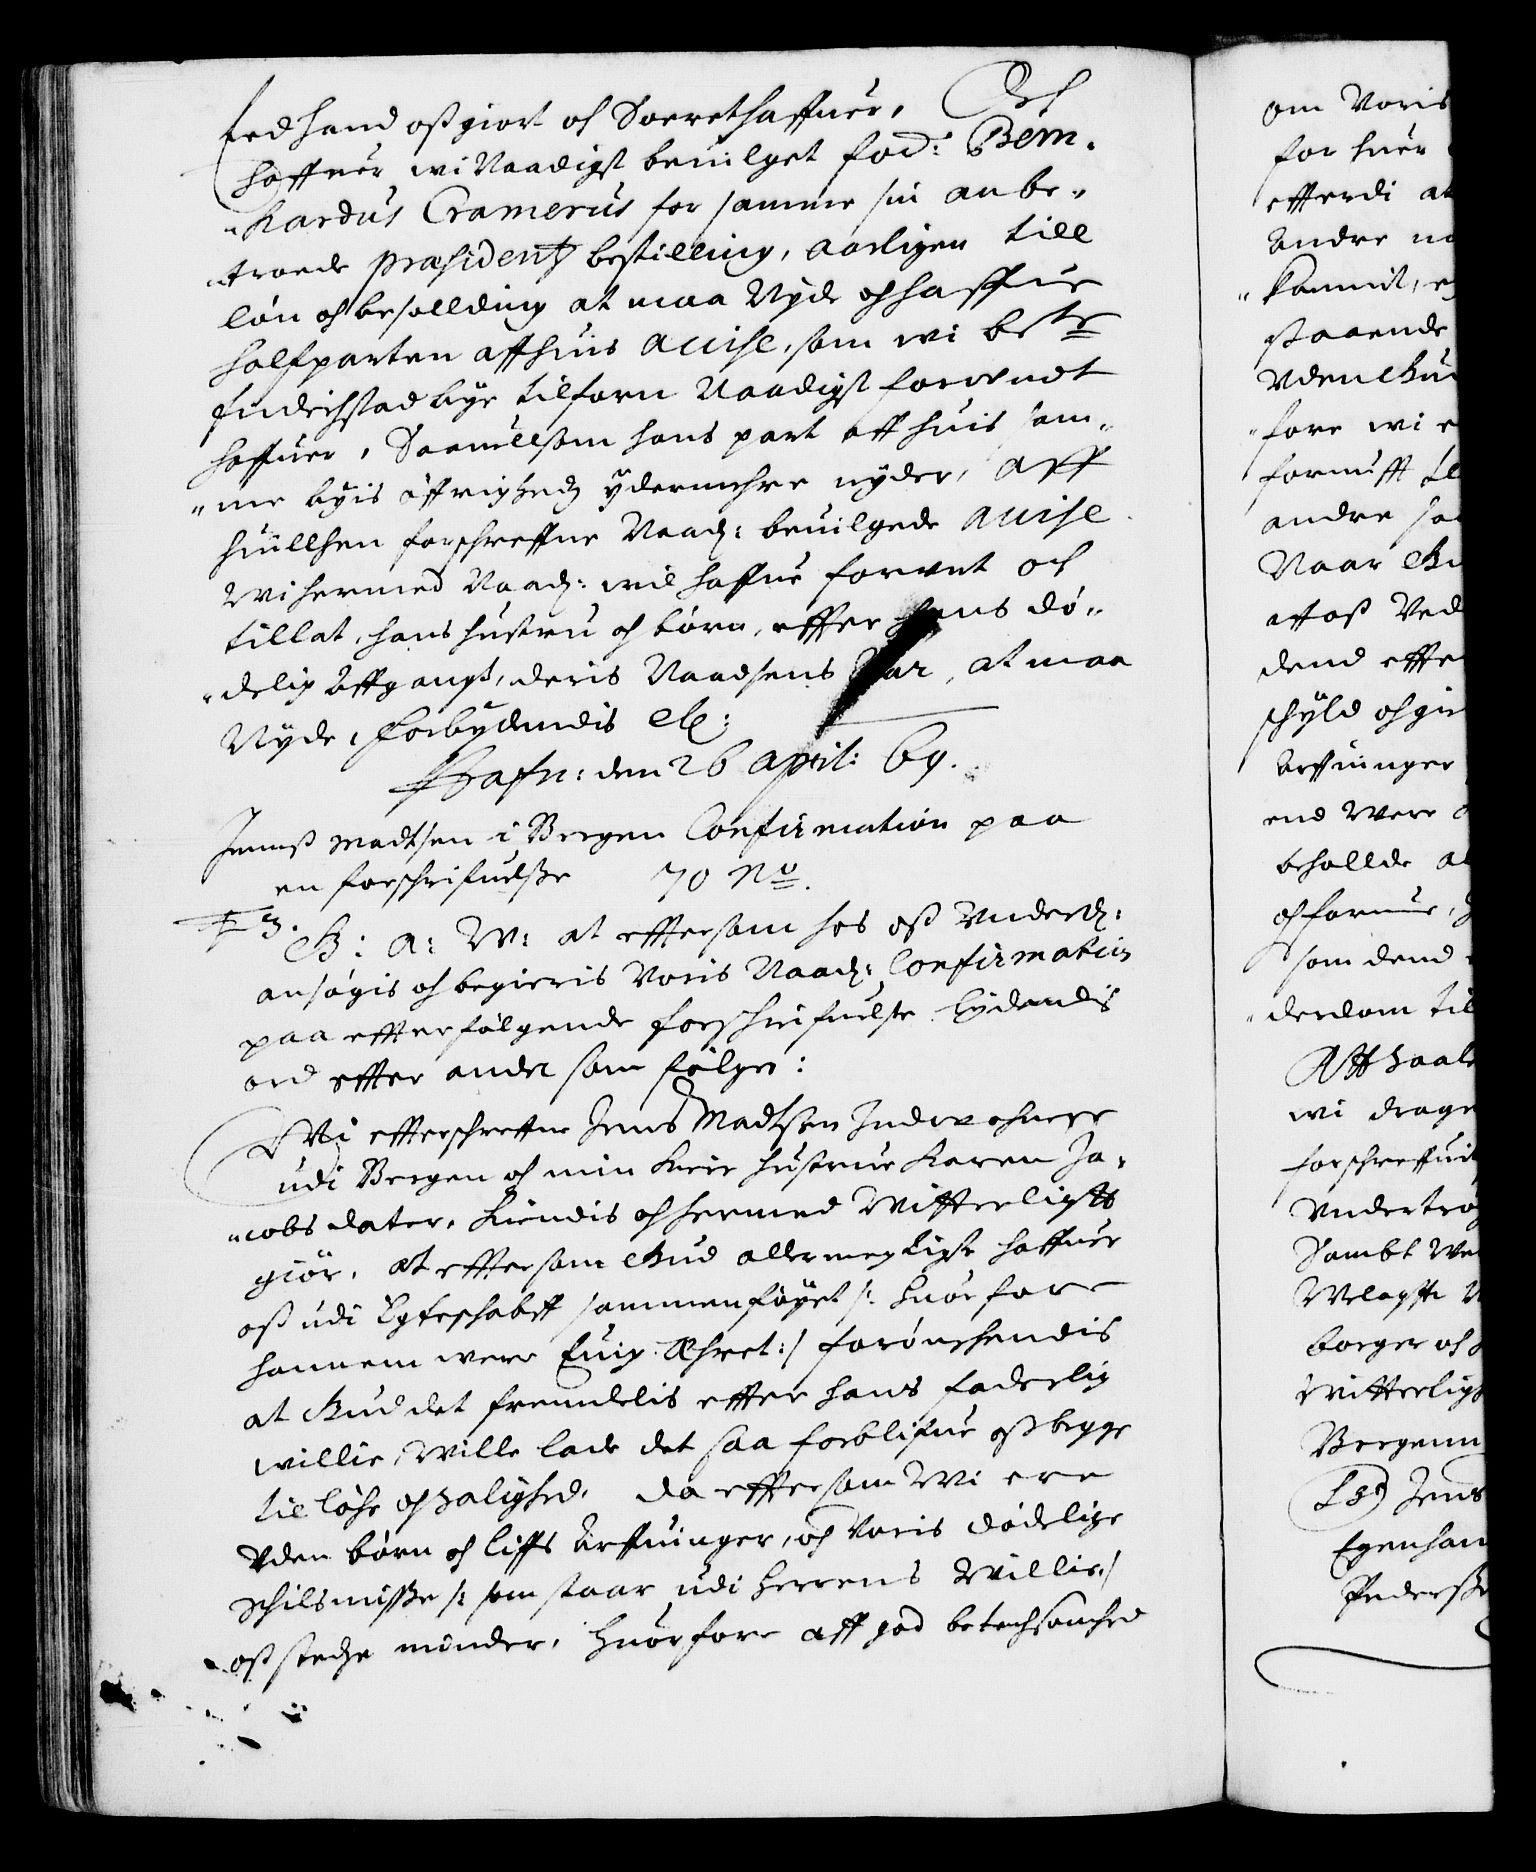 Eed hand oss giort och Soeret haffuer, Och
haffuer wi Naadigst beuilget ford: Bern-
"hardus Cramerus for samme sin anbe-
"troede præsidentz bestilling, aarligen till
løn och besollding at maa Nyde och haffue
halfparten aff huis accise, som wi bete
Friderichstad bye tilforn Naadigst forundt
haffuer, Saauellsom hans part aff huis sam-
"me byis øffrigheds ydermehre nyder, Aff
huillken forschreffne Naad: beuilgede accise
Wi hermed Naad: wil haffue forunt och
tillat, hans hustru och børn, effter hans dø-
"delig Affgangt, deris Naadsens Aar, at maa
Nyde, Forbydendis etc:
Hafn: den 26 April: 69.
Jenss Madtsen i Bergen Confirmation paa
en forschrifuelsse 70 No.
F 3.
G: A: W: at efftersom hos oss Underd:
ansøgis och begieris Voris Naad: Confirmation
paa effterfølgende forschrifuelse lydendis
ord effter andet som følger:
Wi effterschreffne Jens Madtsen Indwohnere
udi Bergen och min kiere hustrue Karen Ja-
"cobs dater, kiendis och hermed Witterligt
giør, at efftersom Gud allermegtigste haffuer
oss udi Egteschabet sammenføyet /: huor fore
hannem were Euig Æhret :/ forønschendis
at Gud det fremdelis effter hans faderlig
willie, Wille lade det saa forblifue oss begge
til løche och salighed, da efftersom Wi ere
Uden børn och liffs Arffuinger, och Voris dødelige
schilsmisse /: som staar udi Herrens Willie :/
oss stedze minder, huorfore aff god betenchsomhed
om Voris
for huer
efferdi at
Andre
staaende
Uden Gu
"fore wi
fornufft
andre
Naar Gu
att oss Ved
dend effte
schyld och
Arffuinger
end Were
behollde
och
som dend
"derdom til
Att saale
wi drage
forschreffuit
Undertr
Sambt
Welagte
borger och
Witterlig
Bergenn
(LS) Jens
Egenhan
Pederss